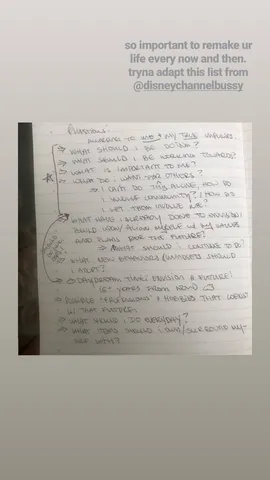 so important to remake ur
life every now and then.
tryna adapt this list from
@disneychannelbussy
QUESTIONS:
→ WHAT SHOULD I BE DOING?
→ WHAT SHOULD I BE WORKING TOWARDS?
→ WHAT IS IMPORTANT TO ME?
→ WHAT DO I WANT FOR OTHERS?
→ I CAN'T DO THIS ALONE, HOW DO
I INVOLVE COMMUNITY? / HOW DO
I LET THEM INVOLVE ME?
WHAT HAVE I ALREADY DONE TO
BUILD UPON/ALIGN MYSELF W/ MY VALUES
AND PLANS FOR THE FUTURE?
→ WHAT SHOULD I CONTINUE TO DO?
WHAT NEW BEHAVIORS/MINDSETS SHOULD
I ADOPT?
→ DAYDREAM TIME! ENVISION A FUTURE!
YEARS FROM NOW
→ POSSIBLE PROFESSIONS & HOBBIES THAT
IN THAT FUTURE
→ WHAT WOULD I DO EVERYDAY?
→ WHAT ITEMS SHOULD I OWN/SURROUND MY-
SELF WITH?